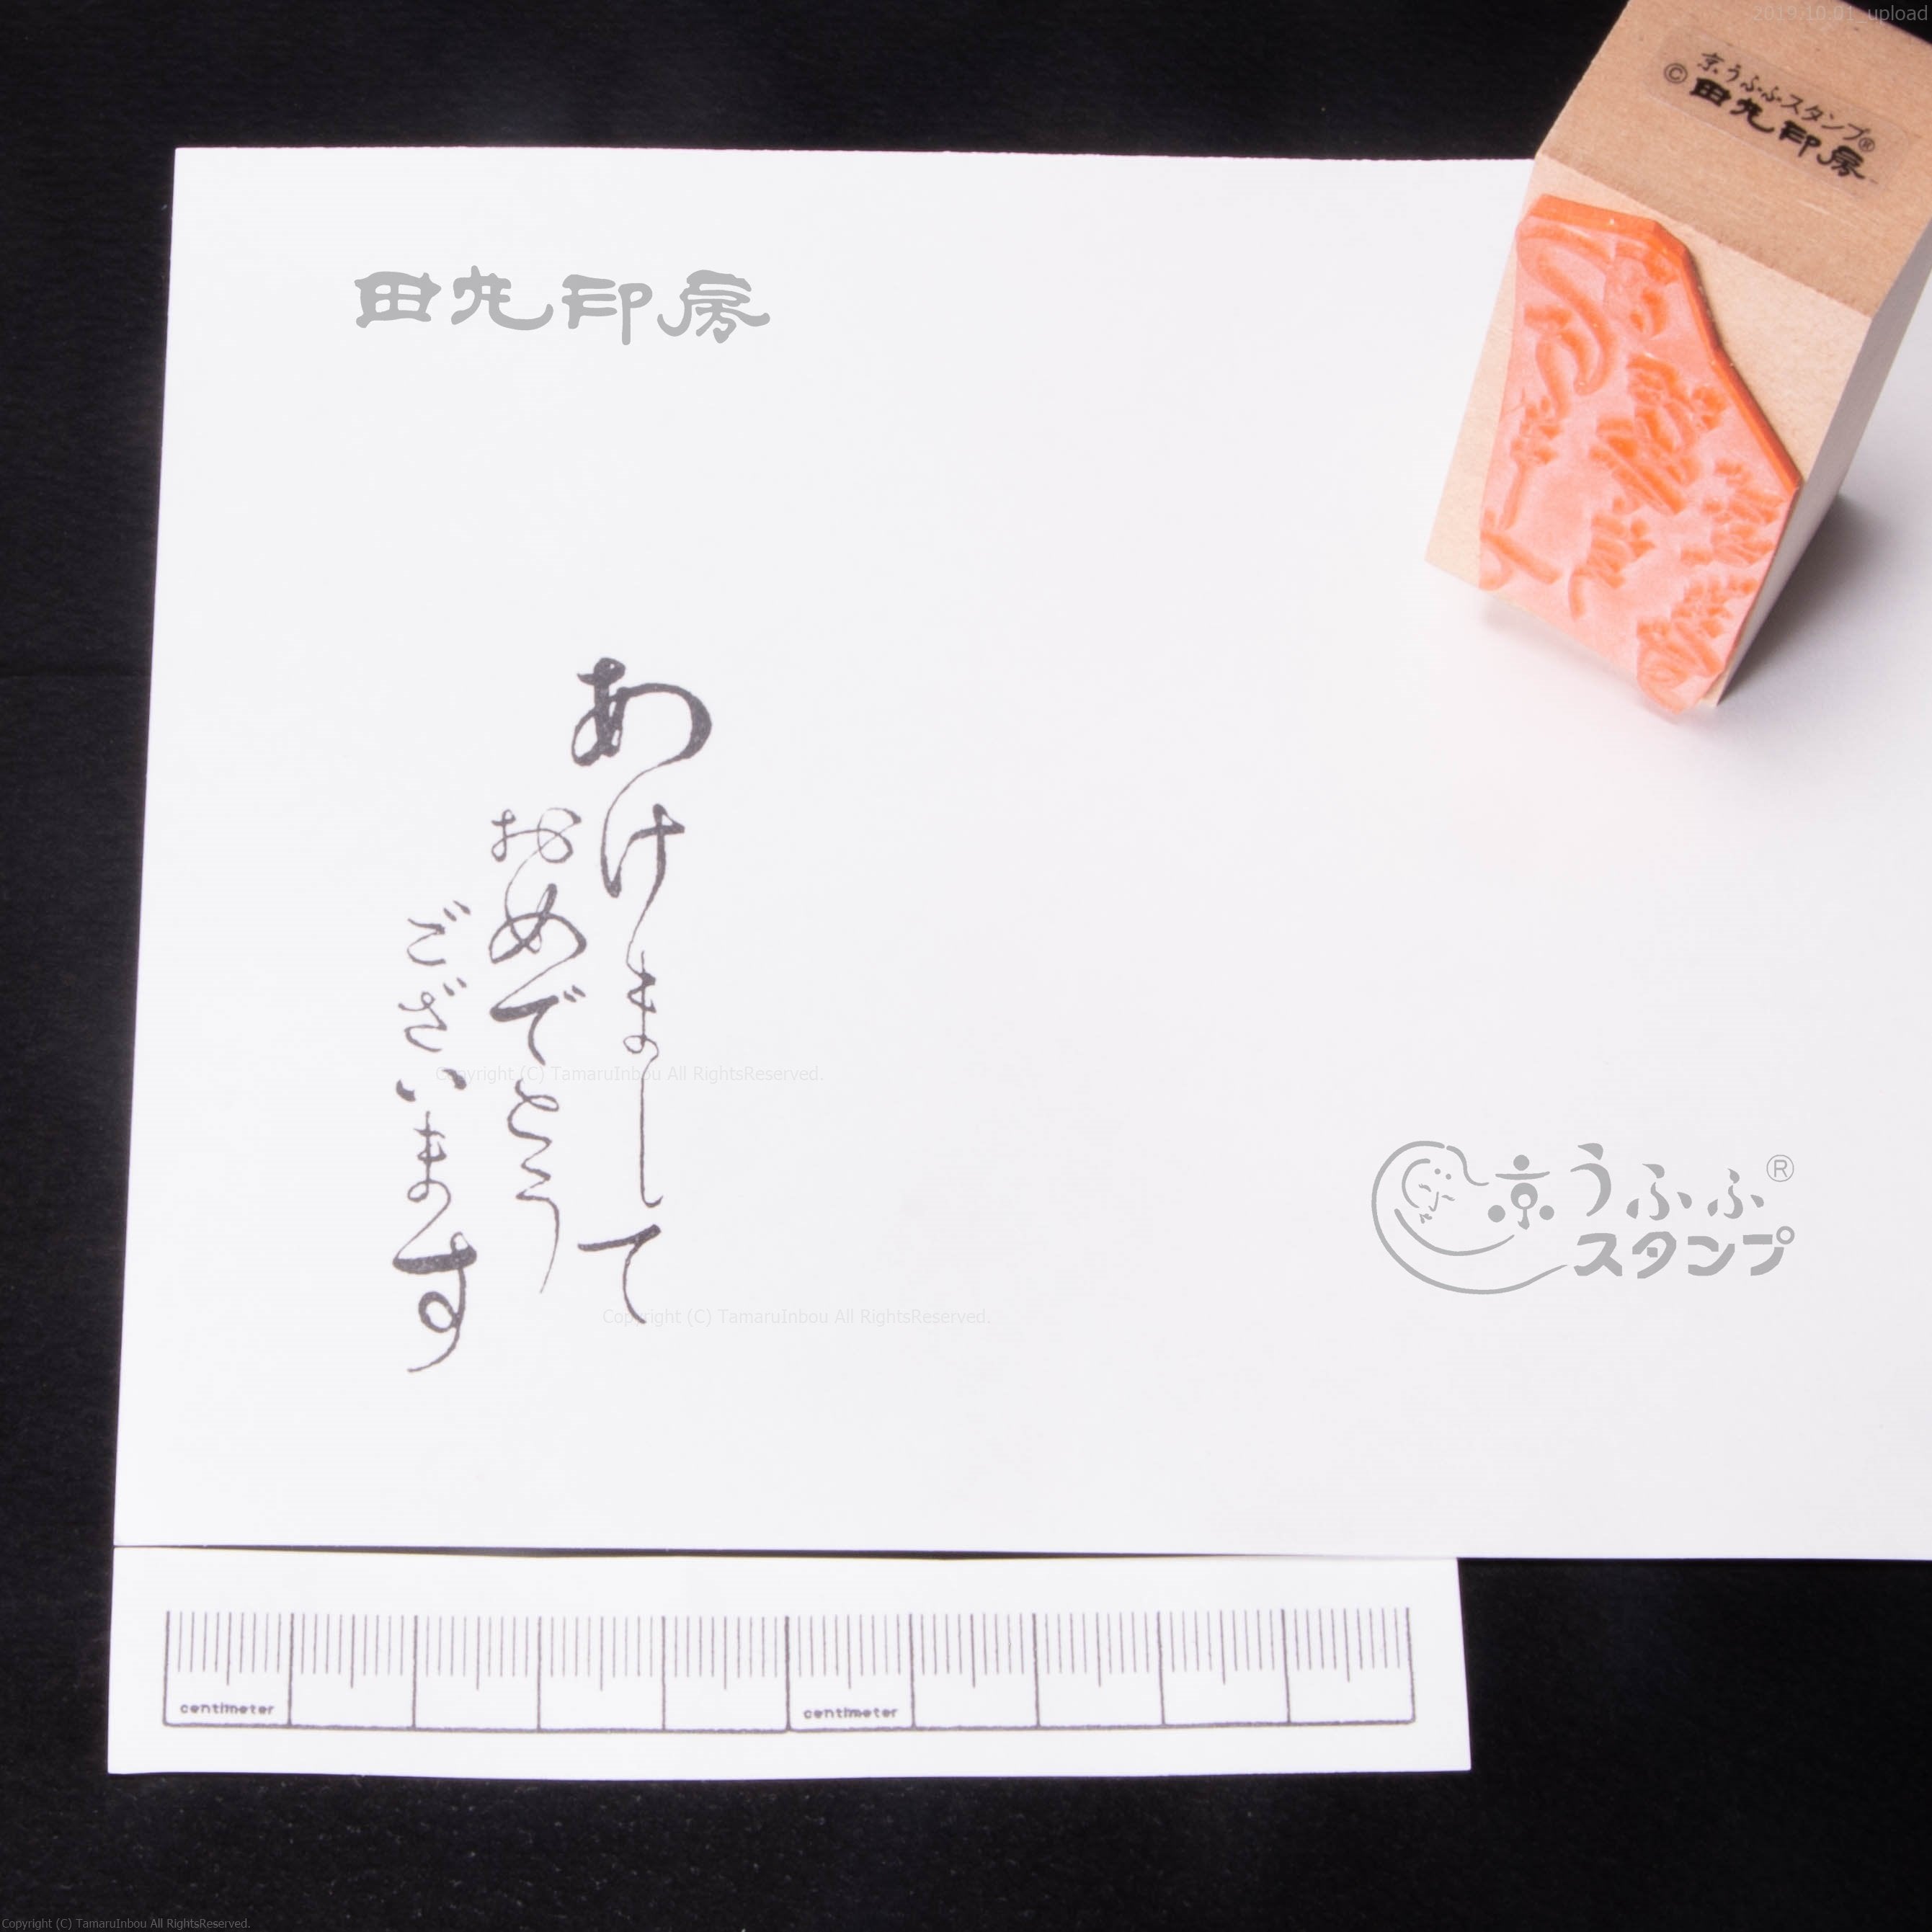 2019.10.01_upload
京うふふスタンプ®
©田丸印房
田丸印房
あけまして
おめでとう
ございます
Copyright (C) TamaruInbou All RightsReserved.
京うふふ®
スタンプ
Copyright (C) TamaruInbou All RightsReserved.
centimeter centimeter
Copyright (C) TamaruInbou All RightsReserved.